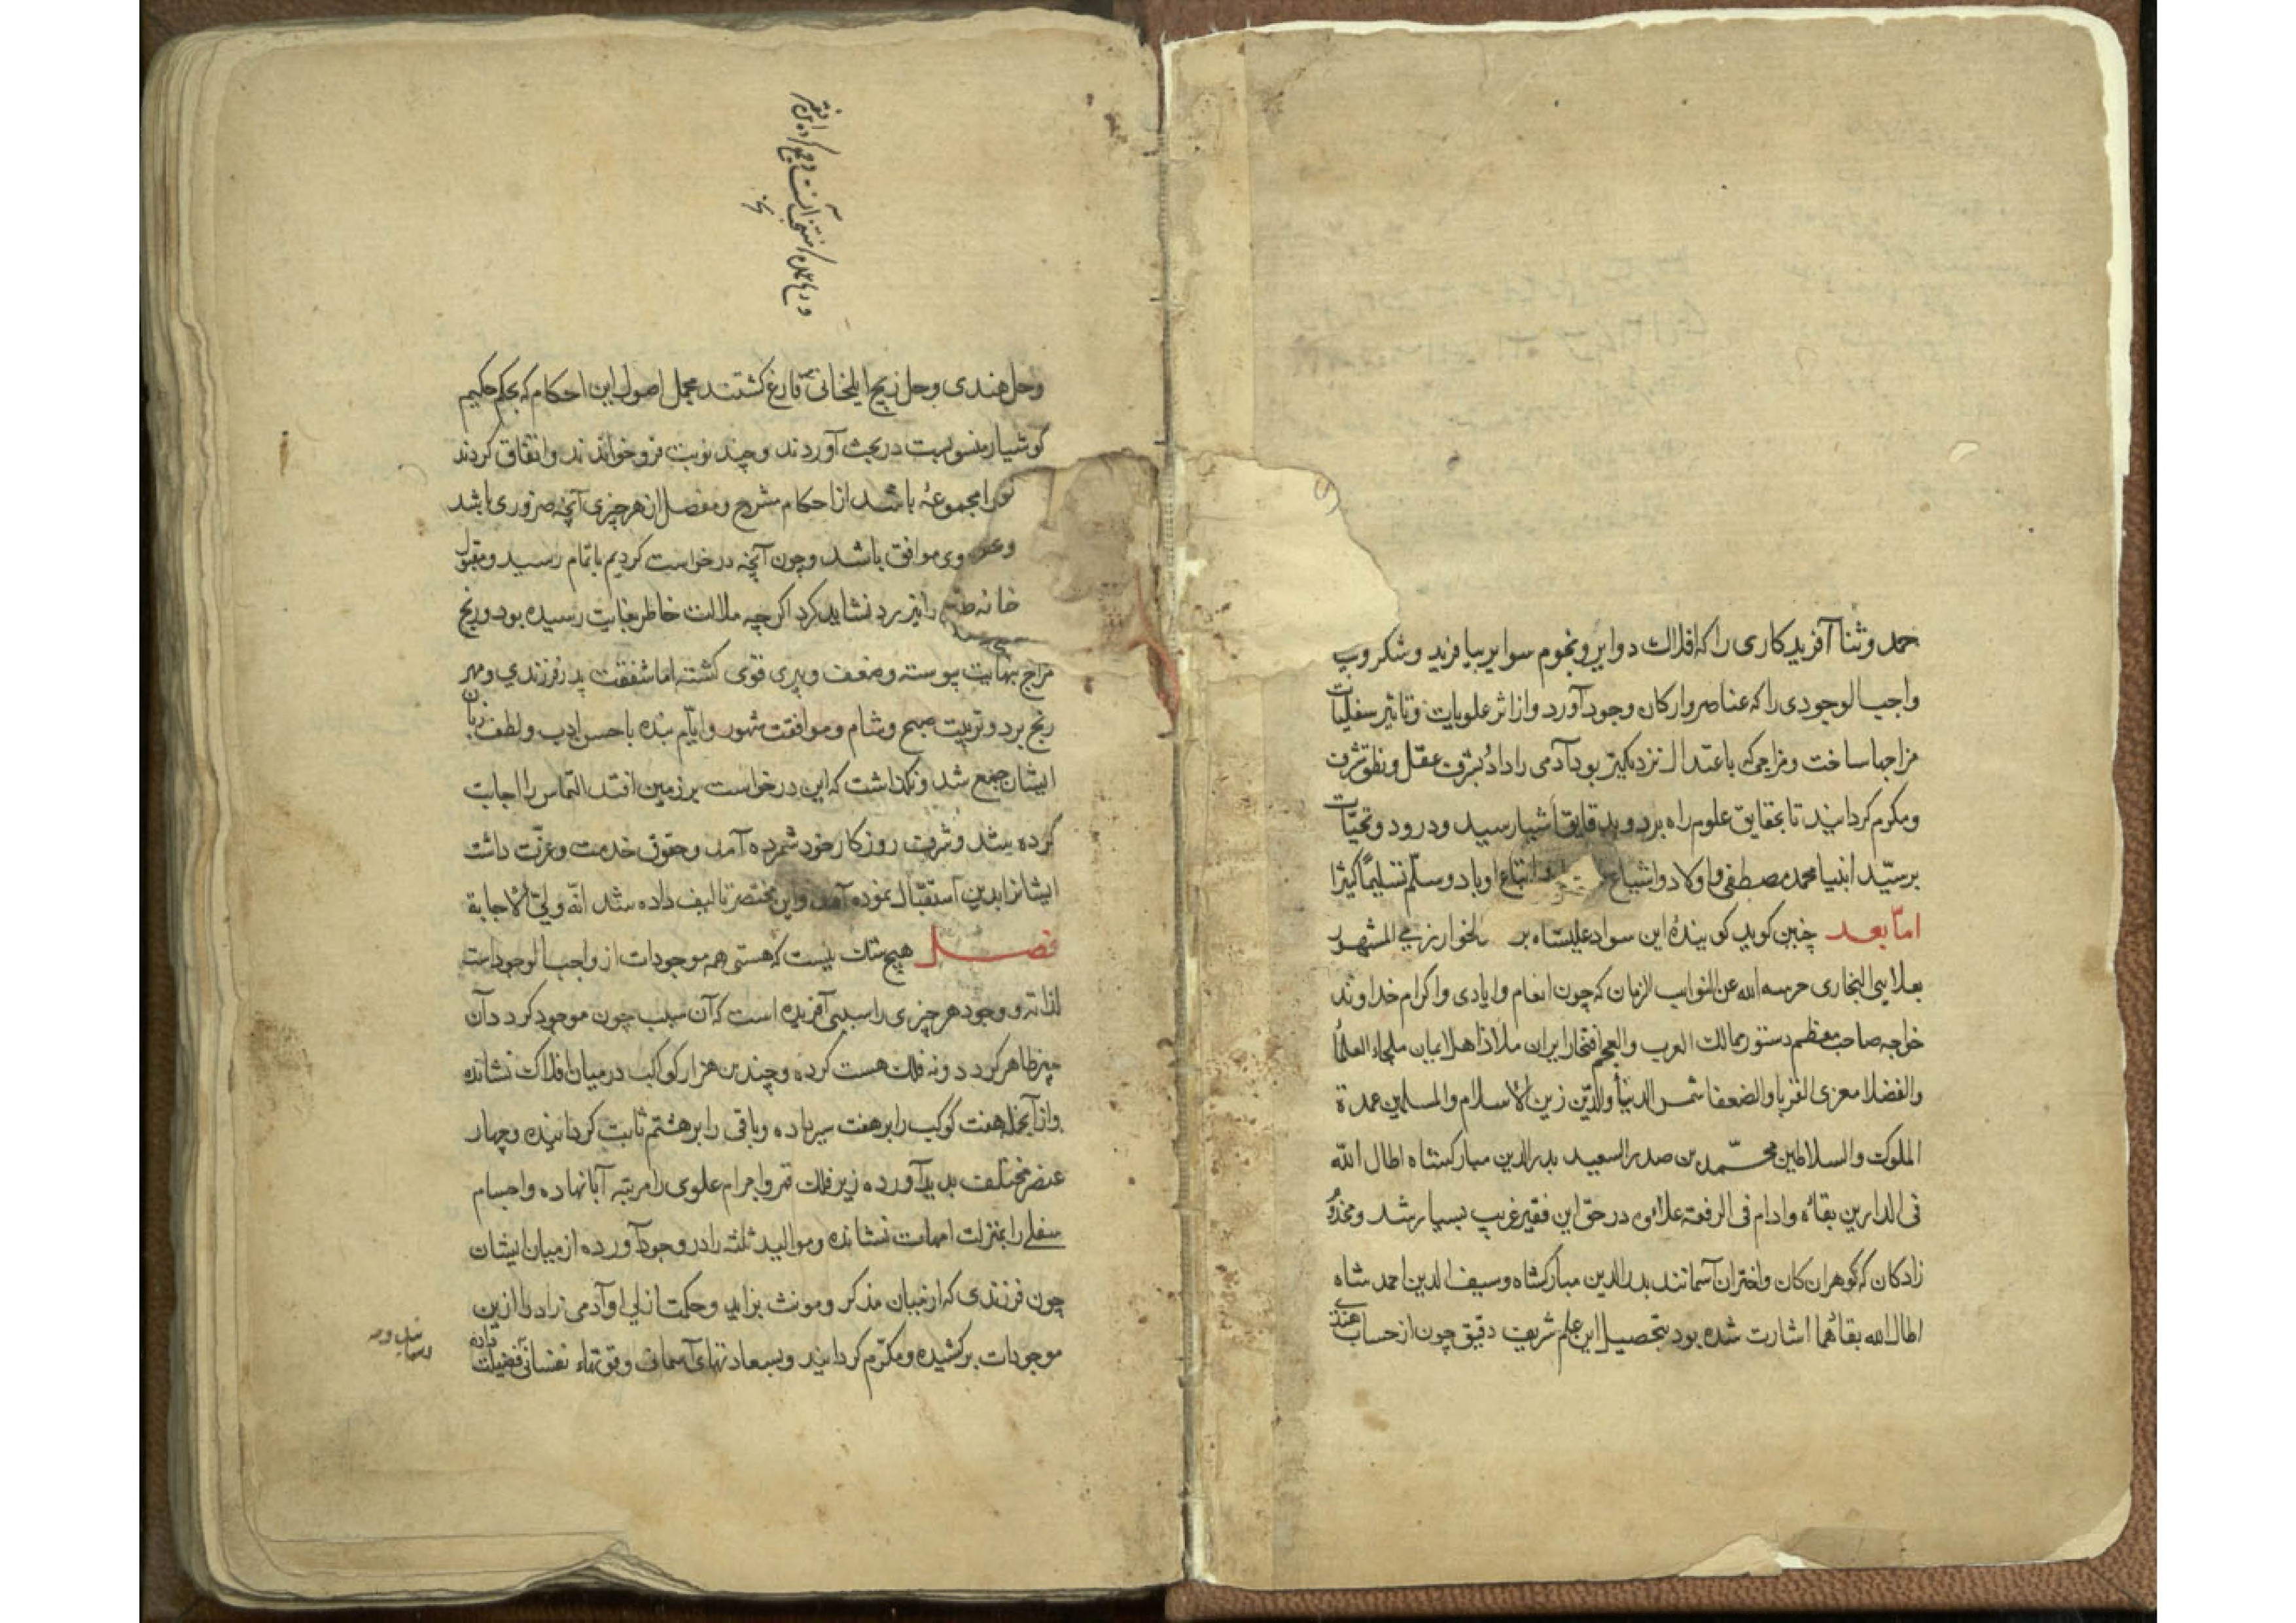 حمد و ثنا آفریدکاری را که افلاک دوایر و نجوم سوایر بیافرید و شکر و سپ
واجب الوجودی را که عناصر و ارکان وجود آورد و از اثر علویات و تاثیر سفلیات
مزاجها ساخت و مزاجی که باعتدال نزدیکتر بود آدمی را داد بشرف عقل و نطق مشرف
و مکرم کردانید تا بحقایق علوم راه برد و بدقایق اشیا رسید و درود و تحیات
بر سید انبیا محمد مصطفی و اولاد و اشیاع و اتباع او باد و سلم تسلیما کثیرا
اما بعد چنین کوید کوینده این سواد علیشاه بر الخوارزمی المشهور
بعلایی البخاری حرسه الله عن النوایب الزمان که چون انعام و ایادی و اکرام خداوند
خواجه صاحب معظم دستور ممالک العرب و العجم افتخار ایران ملاذ اهل ایمان ملجاء العلما
و الفضلا الغربا و الضعفا شمس الدنیا و الدین زین الاسلام و المسلمین عمدة
الملوک و السلاطین محمد بن صدر السعید بدر الدین مبارکشاه اطال الله
فی الدارین بقاه و ادام فی الرفعة علاؤه در حق این فقیر غریب بسیار شد و مخدوم
زادکان که کوهران کان و اختران آسمانند بدر الدین مبارکشاه و سیف الدین احمد شاه
اطال الله بقائهما اشارت شده بود بتحصیل این علم شریف دقیق چون از حساب هندی
و حل هندی و حل زیج ایلخانی فارغ کشتند مجمل اصول این احکام که بحکم حکیم
کوشیار منسوبست در بحث آوردند و چند نوبت فرو خواندند و اتفاق کردند
را مجموعه باشد از احکام مشرح و مفصل از هر چیزی آنچه ضروری باشد
وی موافق باشد و چون آنچه درخواست کردیم باتمام رسید و مقبول
را نیز رد نشاید کرد اکر چه ملالت خاطر بغایت رسیده بود و رنج
مزاج بنهایت پیوسته و ضعف و پیری قوی کشته اما شفقت پدر فرزندی و مهر
رنج برد و تربیت صبح و شام و موافقت شهور و ایام بنده با حسن ادب و لطف زبان
ایشان جمع شد و نکذاشت که این درخواست بر زمین افتد التماس را اجابت
کرده شد و شربت روزکار خود شمرده آمد و حقوق خدمت و عزت داشت
ایشانرا بدین استقبال نموده آمد و این مختصر تالیف داده شد انه ولی الاجابة
فصل هیچ شک نیست که هستی همه موجودات از واجب الوجود است
لذاته و وجود هر چیزی را سببی آفریده است که آن سبب چون موجود کردد آن
چیز ظاهر کردد و نه فلک هست کرده و چندین هزار کوکب در میان افلاک نشانده
و از آنجمله هفت کوکب را بر هفت سیر داده و باقی را بر هشتم ثابت کردانیده و چهار
عنصر مختلف پدید آورده زیر فلک قمر و اجرام علوی را مرتبه آبا نهاده و اجسام
سفلی را بمنزلت امهات نشانده و موالید ثلثه را در وجود آورده از میان ایشان
چون فرزندی که از میان مذکر و مونث بزاید و حکمت ازلی او آدمی زاد را از این
موجودات برکشیده و مکرم کردانید و بسعادتهای آسمانی و قوتهاء نفسانی فضیلت داده